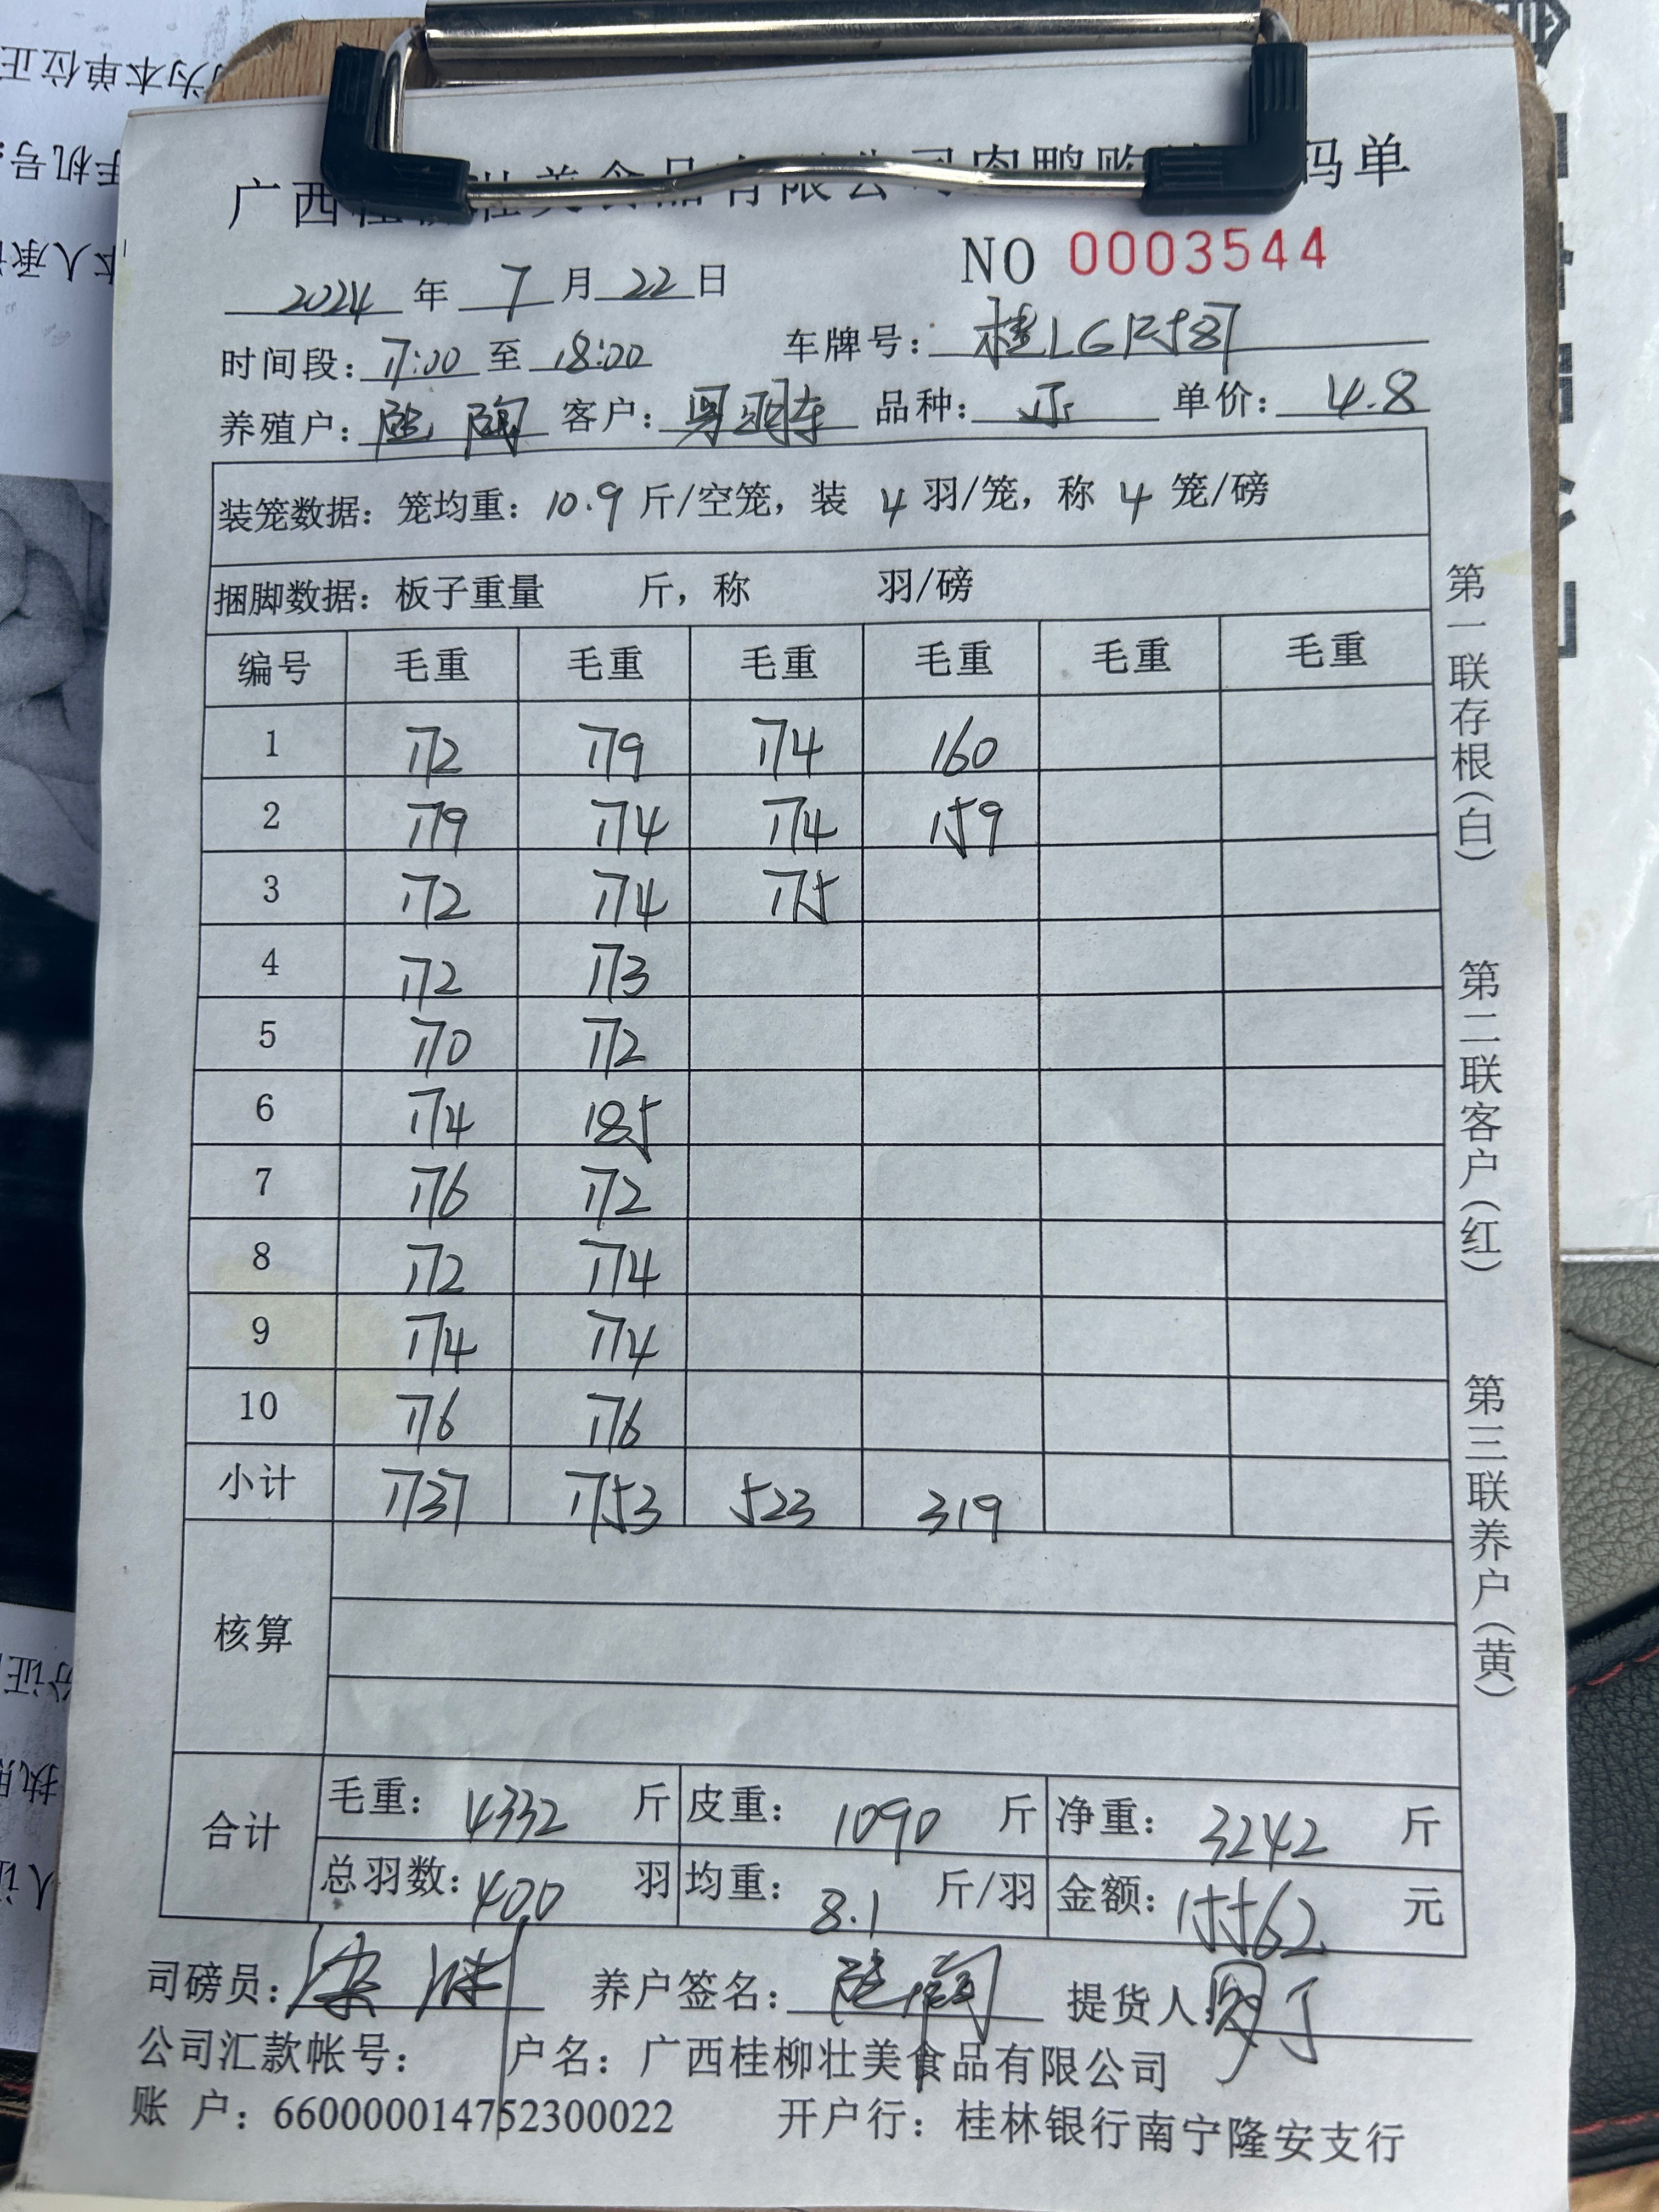 广西桂柳壮美食品有限公司肉鸭购销 码单
NO 0003544
2024 年 7 月 22 日
时间段: 17:00 至 18:00 车牌号:
养殖户: 陆 客户: 品种: 单价: 4.8
装笼数据: 笼均重: 10.9 斤/空笼, 装 4 羽/笼, 称 4 笼/磅
捆脚数据: 板子重量 斤, 称 羽/磅
编号 毛重 毛重 毛重 毛重 毛重 毛重
1 172 179 174 160
2 179 174 174 159
3 172 174 175
4 172 173
5 170 172
6 174 185
7 176 172
8 172 174
9 174 174
10 176 176
小计 1737 1753 523 319
核算
合计 毛重: 4332 斤 皮重: 1090 斤 净重: 3242 斤
总羽数: 400 羽 均重: 8.1 斤/羽 金额: 15562 元
司磅员: 养户签名: 提货人:
公司汇款帐号: 户名: 广西桂柳壮美食品有限公司
账 户: 660000014752300022 开户行: 桂林银行南宁隆安支行
第一联存根(白)
第二联客户(红)
第三联养户(黄)
为本单位正
手机号: